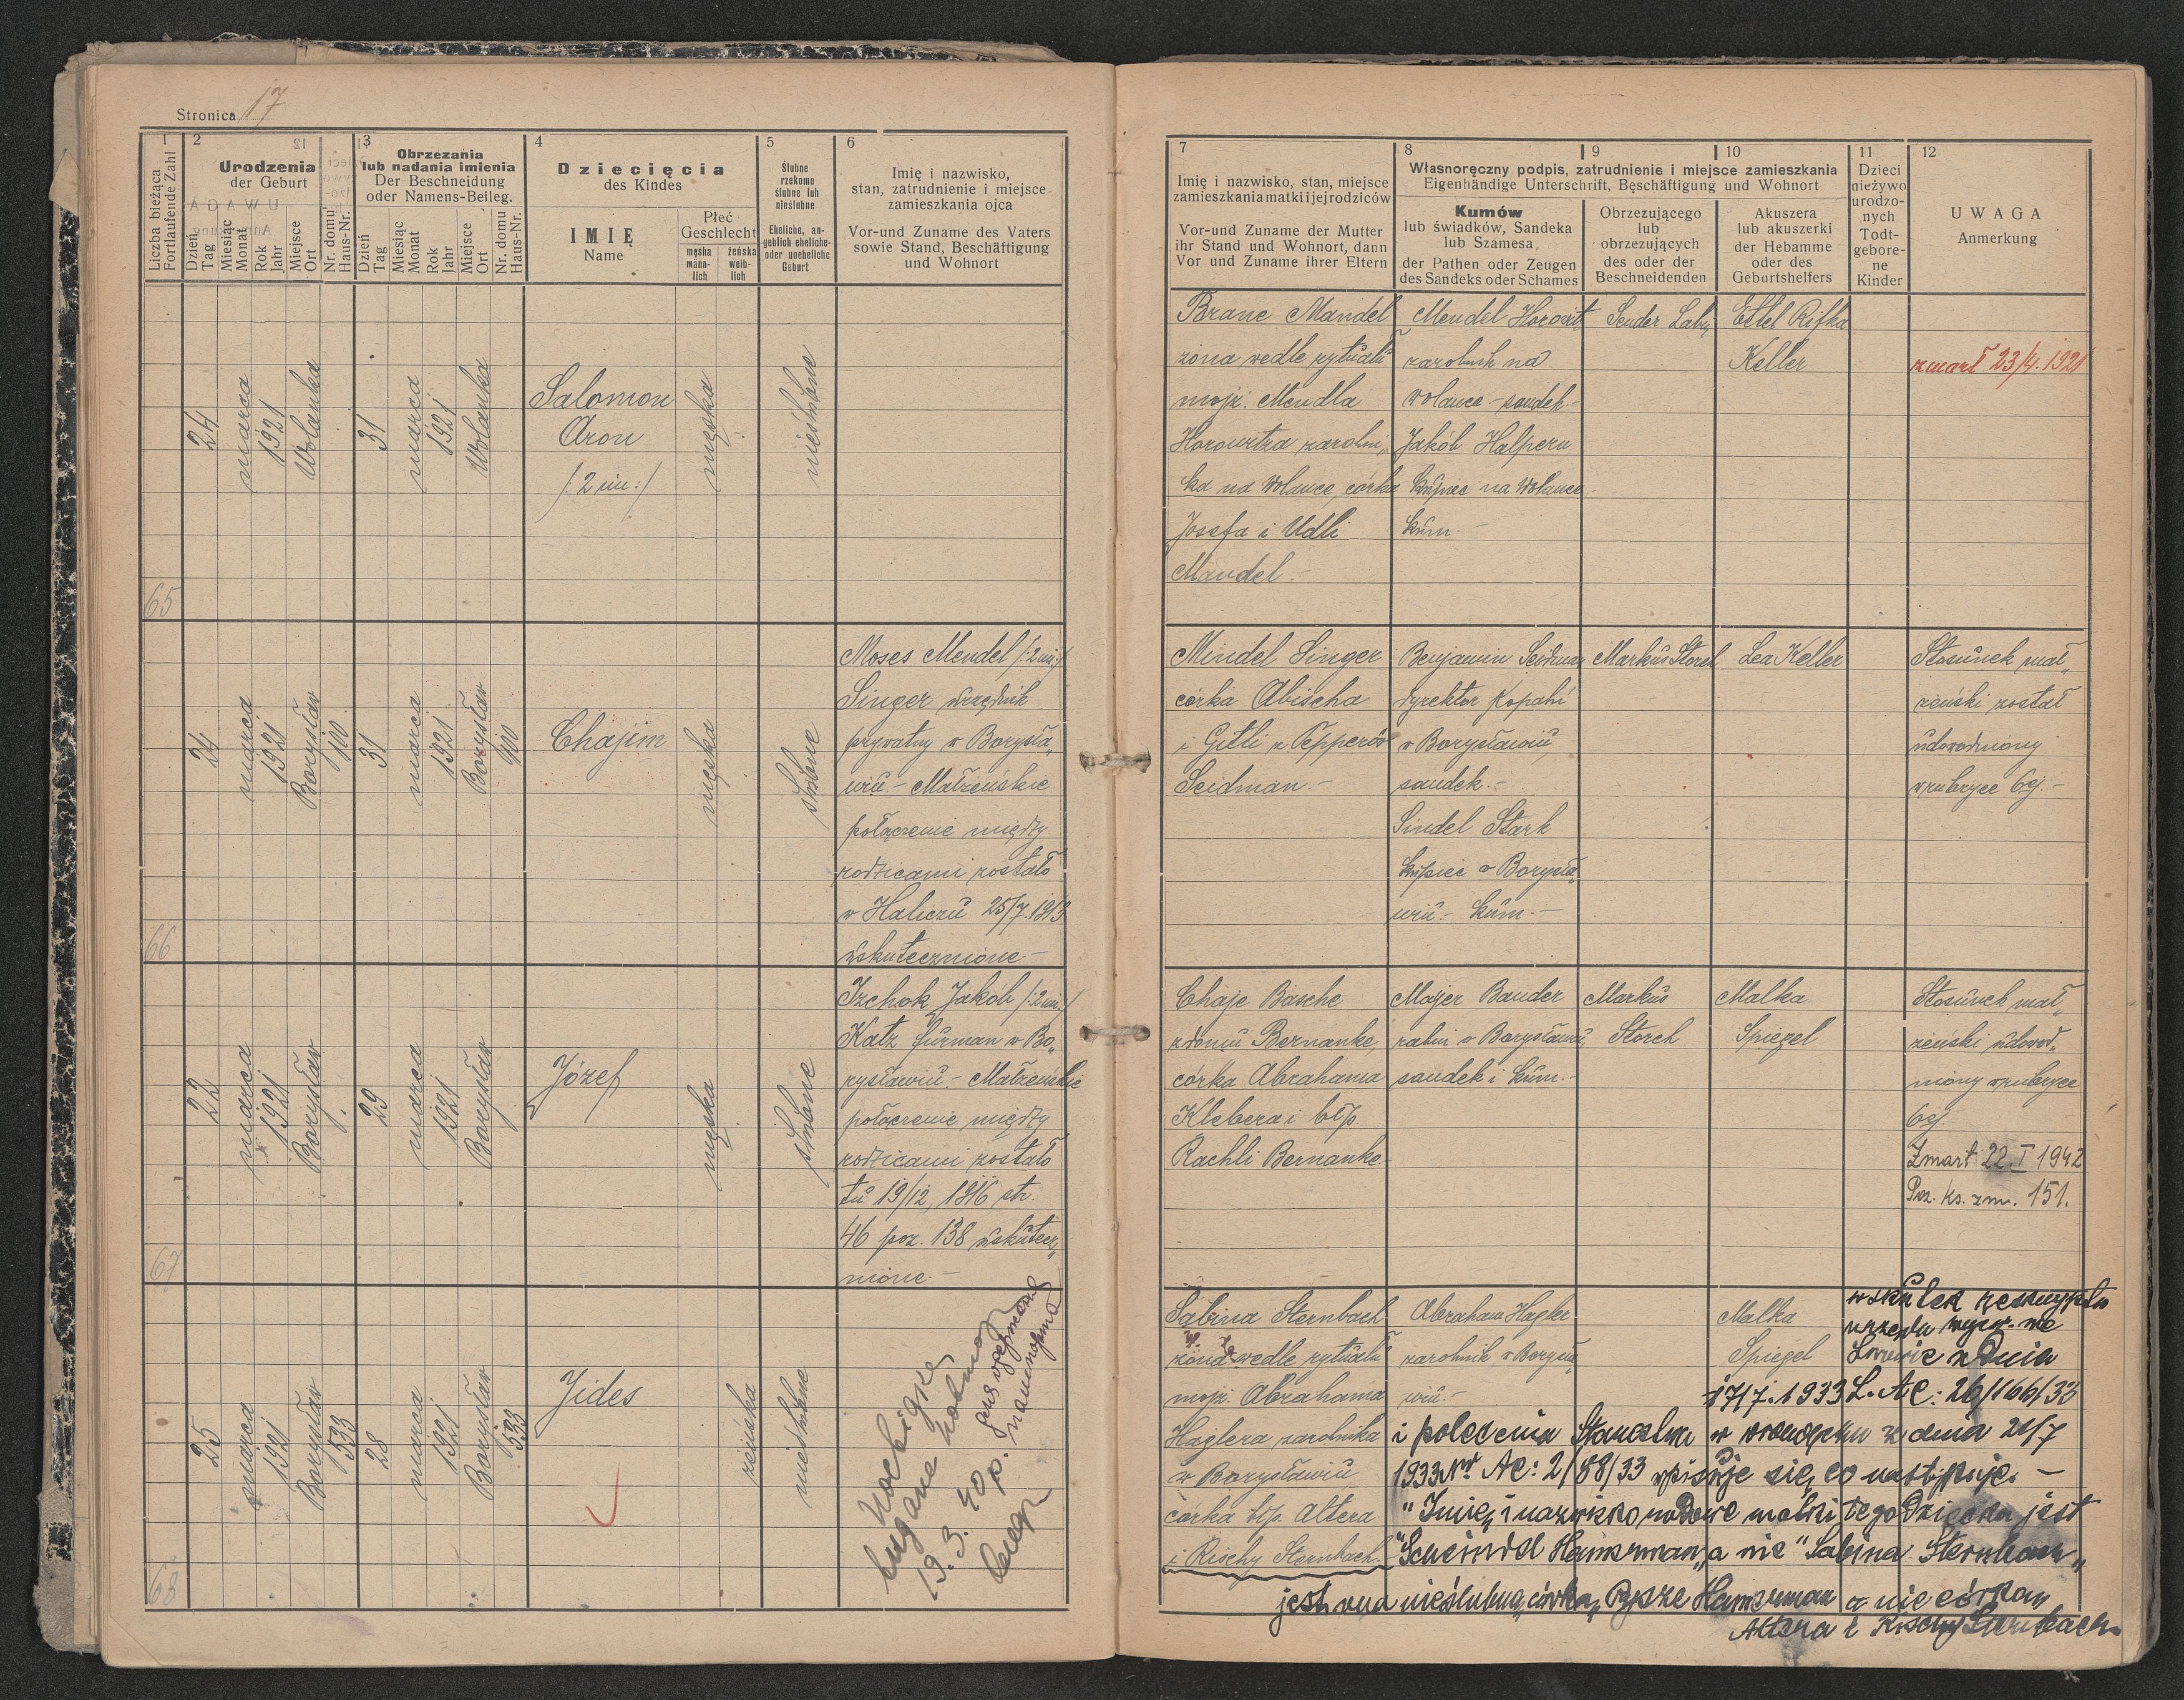 Stronica 17
1
Liczba bieżąca
Fortlaufende Zahl
2
Urodzenia
der Geburt
Dzień
Tag
Miesiąc
Monat
Rok
Jahr
Miejsce
Ort
Nr. domu
Haus-Nr.
3
Obrzezania
lub nadania imienia
Der Beschneidung
oder Namens-Beileg.
Dzień
Tag
Miesiąc
Monat
Rok
Jahr
Miejsce
Ort
Nr. domu
Haus-Nr.
4
Dziecięcia
des Kindes
IMIĘ
Name
Płeć
Geschlecht
męska
männ-
lich
żeńska
weib-
lich
5
Ślubne
rzekomo
ślubne lub
nieślubne
Eheliche, an-
geblich eheliche-
oder uneheliche
Geburt
6
Imię i nazwisko,
stan, zatrudnienie i miejsce
zamieszkania ojca
Vor-und Zuname des Vaters
sowie Stand, Beschäftigung
und Wohnort
7
Imię i nazwisko, stan, miejsce
zamieszkania matki i jej rodziców
Vor-und Zuname der Mutter
ihr Stand und Wohnort, dann
Vor und Zuname ihrer Eltern
8
9
10
Własnoręczny podpis, zatrudnienie i miejsce zamieszkania
Eigenhändige Unterschrift, Beschäftigung und Wohnort
Kumów
lub świadków, Sandeka
lub Szamesa
der Pathen oder Zeugen
des Sandeks oder Schames
Obrzezującego
lub
obrzezujących
des oder der
Beschneidenden
Akuszera
lub akuszerki
der Hebamme
oder des
Geburtshelfers
11
Dzieci
nieżywo
urodzo-
nych
Todt-
gebore-
ne
Kinder
12
UWAGA
Anmerkung
65
24
marca
1921
Wolanka
31
marca
1921
Wolanka
Salomon
Aron
/:2 im:/
męska
nieślubne
Brane Mandel
żona wedle rytuału
mojż. Mendla
Horowitza zarobni„
ka na Wolance, córka
Josefa i Udli
Mandel.-
Mendel Horowitz
zarobnik na
Wolance - sandek.-
Jakób Halpern
kupiec na Wolance
kum.-
Sender
Ettel Rifka
Keller
zmarł 23/4.1921
66
24
marca
1921
Borysław
31
marca
1921
Borysław
Chajim
męska
ślubne
Moses Mendel /:2 im:/
Singer urzędnik
prywatny w Borysła„
wiu.- Małżeńskie
połączenie między
rodzicami zostało
w Haliczu 25/7.1913
uskutecznione.-
Mindel Singer
córka Abischa
i Gitli z Pepperów
Seidman.-
Benjamin Seidman
dyrektor kopalni
w Borysławiu,
sandek.-
Sindel Stark
kupiec w Borysła„
wiu.- kum.-
Markus Storch
Lea Keller
Stosunek mał„
żeński został
udowodniony
w rubryce 6ej.-
67
22
marca
1921
Borysław
29
marca
1921
Borysław
Józef
męska
ślubne
Izchok Jakób /:2 im:/
Katz furman w Bo„
rysławiu.- Małżeńskie
połączenie między
rodzicami zostało
tu 19/12, 1916 str.
46 poz. 138 uskutecz„
nione.-
Chaje Basche
z domu Bernanke,
córka Abrahama
Klebera i błp.
Rachli Bernanke.
Majer Bander
rabin w Borysławiu,
sandek i kum.-
Markus
Storch
Malka
Spiegel
Stosunek mał„
żeński udowod„
niony w rubryce
6ej.
Zmarł 22.I 1942
Poz. ks. zm. 151.
68
25
marca
1921
Borysław
533
28
marca
1921
Borysław
533
Jides
żeńska
nieślubne
19. 3. 40
Sabina Sternbach
żona wedle rytuału
mojż. Abrahama
Haglera zarobnika
w Borysławiu
córka błp. Altera
i Rischy Sternbach.
Abraham Hagler
zarobnik w Borysła„
wiu.-
Malka
Spiegel
wskutek reskryptu
urzędu wojew. we
Lwowie z dnia
17/7.1933 L. AC: 26/166/33
i polecenia Starostwa w Drohobyczu z dnia 21/7
1933 Nr. AC: 2/88/33 wpisuje się co następuje. -
"Imię i nazwisko rodowe matki tego dziecka jest
"Scheindel Hamerman„ a nie "Sabina Sternbach„
jest ona nieślubną córką Ryzze Hamerman a nie córką
Altera i Rischy Sternbach.